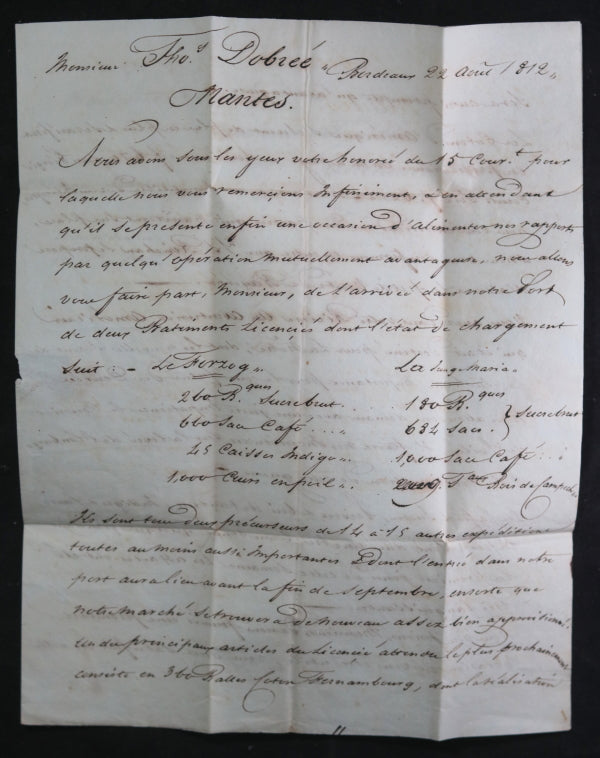 Monsieur Tho.s Dobréé „ Bordeaux 22 Août 1812 „
Nantes.
Nous avons sous les yeux votre honoré du 15 Cour.t pour
laquelle nous vous remerçions Infiniment, & en attendant
qu'il se presente enfin une occasion d'alimenter nos rapports
par quelqu'opération Mutuellement avantageuse, nous allons
vous faire part, Monsieur, de L'arrivéé dans notre Port
de deux Batiments Licenciés dont l'état de chargement
Suit : - Le Herzog „ La Jungs Maria „
260 B.ques Sucre brut . . . 180 B.ques
600 Sacs Café . . . „ 634 Sacs . } Sucre brut
45 Caisses Indigo „ 1,000 Sacs Café : . :
1,000 Cuirs en poil „ Bois de Campêche
Ils sont tous deux précurseurs de 14 à 15 autres expéditions
toutes au moins aussi Importantes & dont l'entréé dans notre
port aura lieu avant la fin de Septembre, ensorte que
notre marché se trouvera de nouveau assez bien approvisionné.
Un des principaux articles du Licencié attendu le plus prochainement
consiste en 360 Balles Coton Fernambourg, dont la réalisation